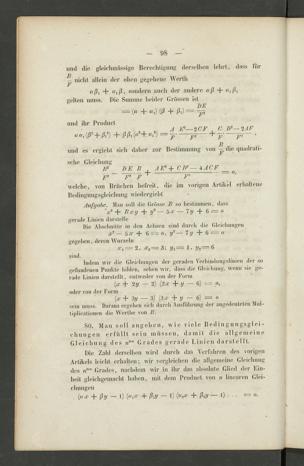 — 98 —
und die gleichmässige Berechtigung derselben lehrt, dass für
B/F nicht allein der eben gegebene Werth
αβ₁ + α₁β, sondern auch der andere αβ + α₁β₁
gelten muss. Die Summe beider Grössen ist
= (α + α₁) (β + β₁) = DE/F²
und ihr Product
αα₁(β² + β₁²) + ββ₁(α² + α₁²) = A/F · (E² − 2CF)/F² + C/F · (D² − 2AF)/F²,
und es ergiebt sich daher zur Bestimmung von B/F die quadrati-
sche Gleichung
B²/F² − DE/F² · B/F + (AE² + CD² − 4ACF)/F³ = 0,
welche, von Brüchen befreit, die im vorigen Artikel erhaltene
Bedingungsgleichung wiedergiebt
Aufgabe. Man soll die Grösse B so bestimmen, dass
x² + Bxy + y² − 5x − 7y + 6 = 0
gerade Linien darstelle
Die Abschnitte in den Achsen sind durch die Gleichungen
x² − 5x + 6 = 0, y² − 7y + 6 = 0
gegeben, deren Wurzeln
x₁ = 2, x₂ = 3; y₁ = 1, y₂ = 6
sind.
Indem wir die Gleichungen der geraden Verbindungslinien der so
gefundenen Punkte bilden, sehen wir, dass die Gleichung, wenn sie ge-
rade Linien darstellt, entweder von der Form
(x + 2y − 2) (2x + y − 6) = 0,
oder von der Form
(x + 3y − 3) (3x + y − 6) = 0
sein muss. Daraus ergeben sich durch Ausführung der angedeuteten Mul-
tiplicationen die Werthe von B.
80. Man soll angeben, wie viele Bedingungsglei-
chungen erfüllt sein müssen, damit die allgemeine
Gleichung des nᵗᵉⁿ Grades gerade Linien darstellt.
Die Zahl derselben wird durch das Verfahren des vorigen
Artikels leicht erhalten; wir vergleichen die allgemeine Gleichung
des nᵗᵉⁿ Grades, nachdem wir in ihr das absolute Glied der Ein-
heit gleichgemacht haben, mit dem Product von n linearen Glei-
chungen
(αx + βy − 1) (α₁x + β₁y − 1) (α₂x + β₂y − 1) . . . = 0.